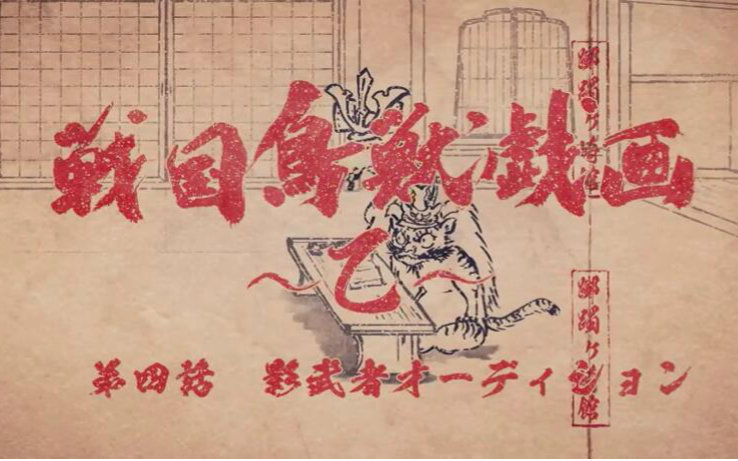 戦国鳥獣戯画
〜乙〜
第四話　影武者オーディション
躑躅ヶ崎館
躑躅ヶ崎館